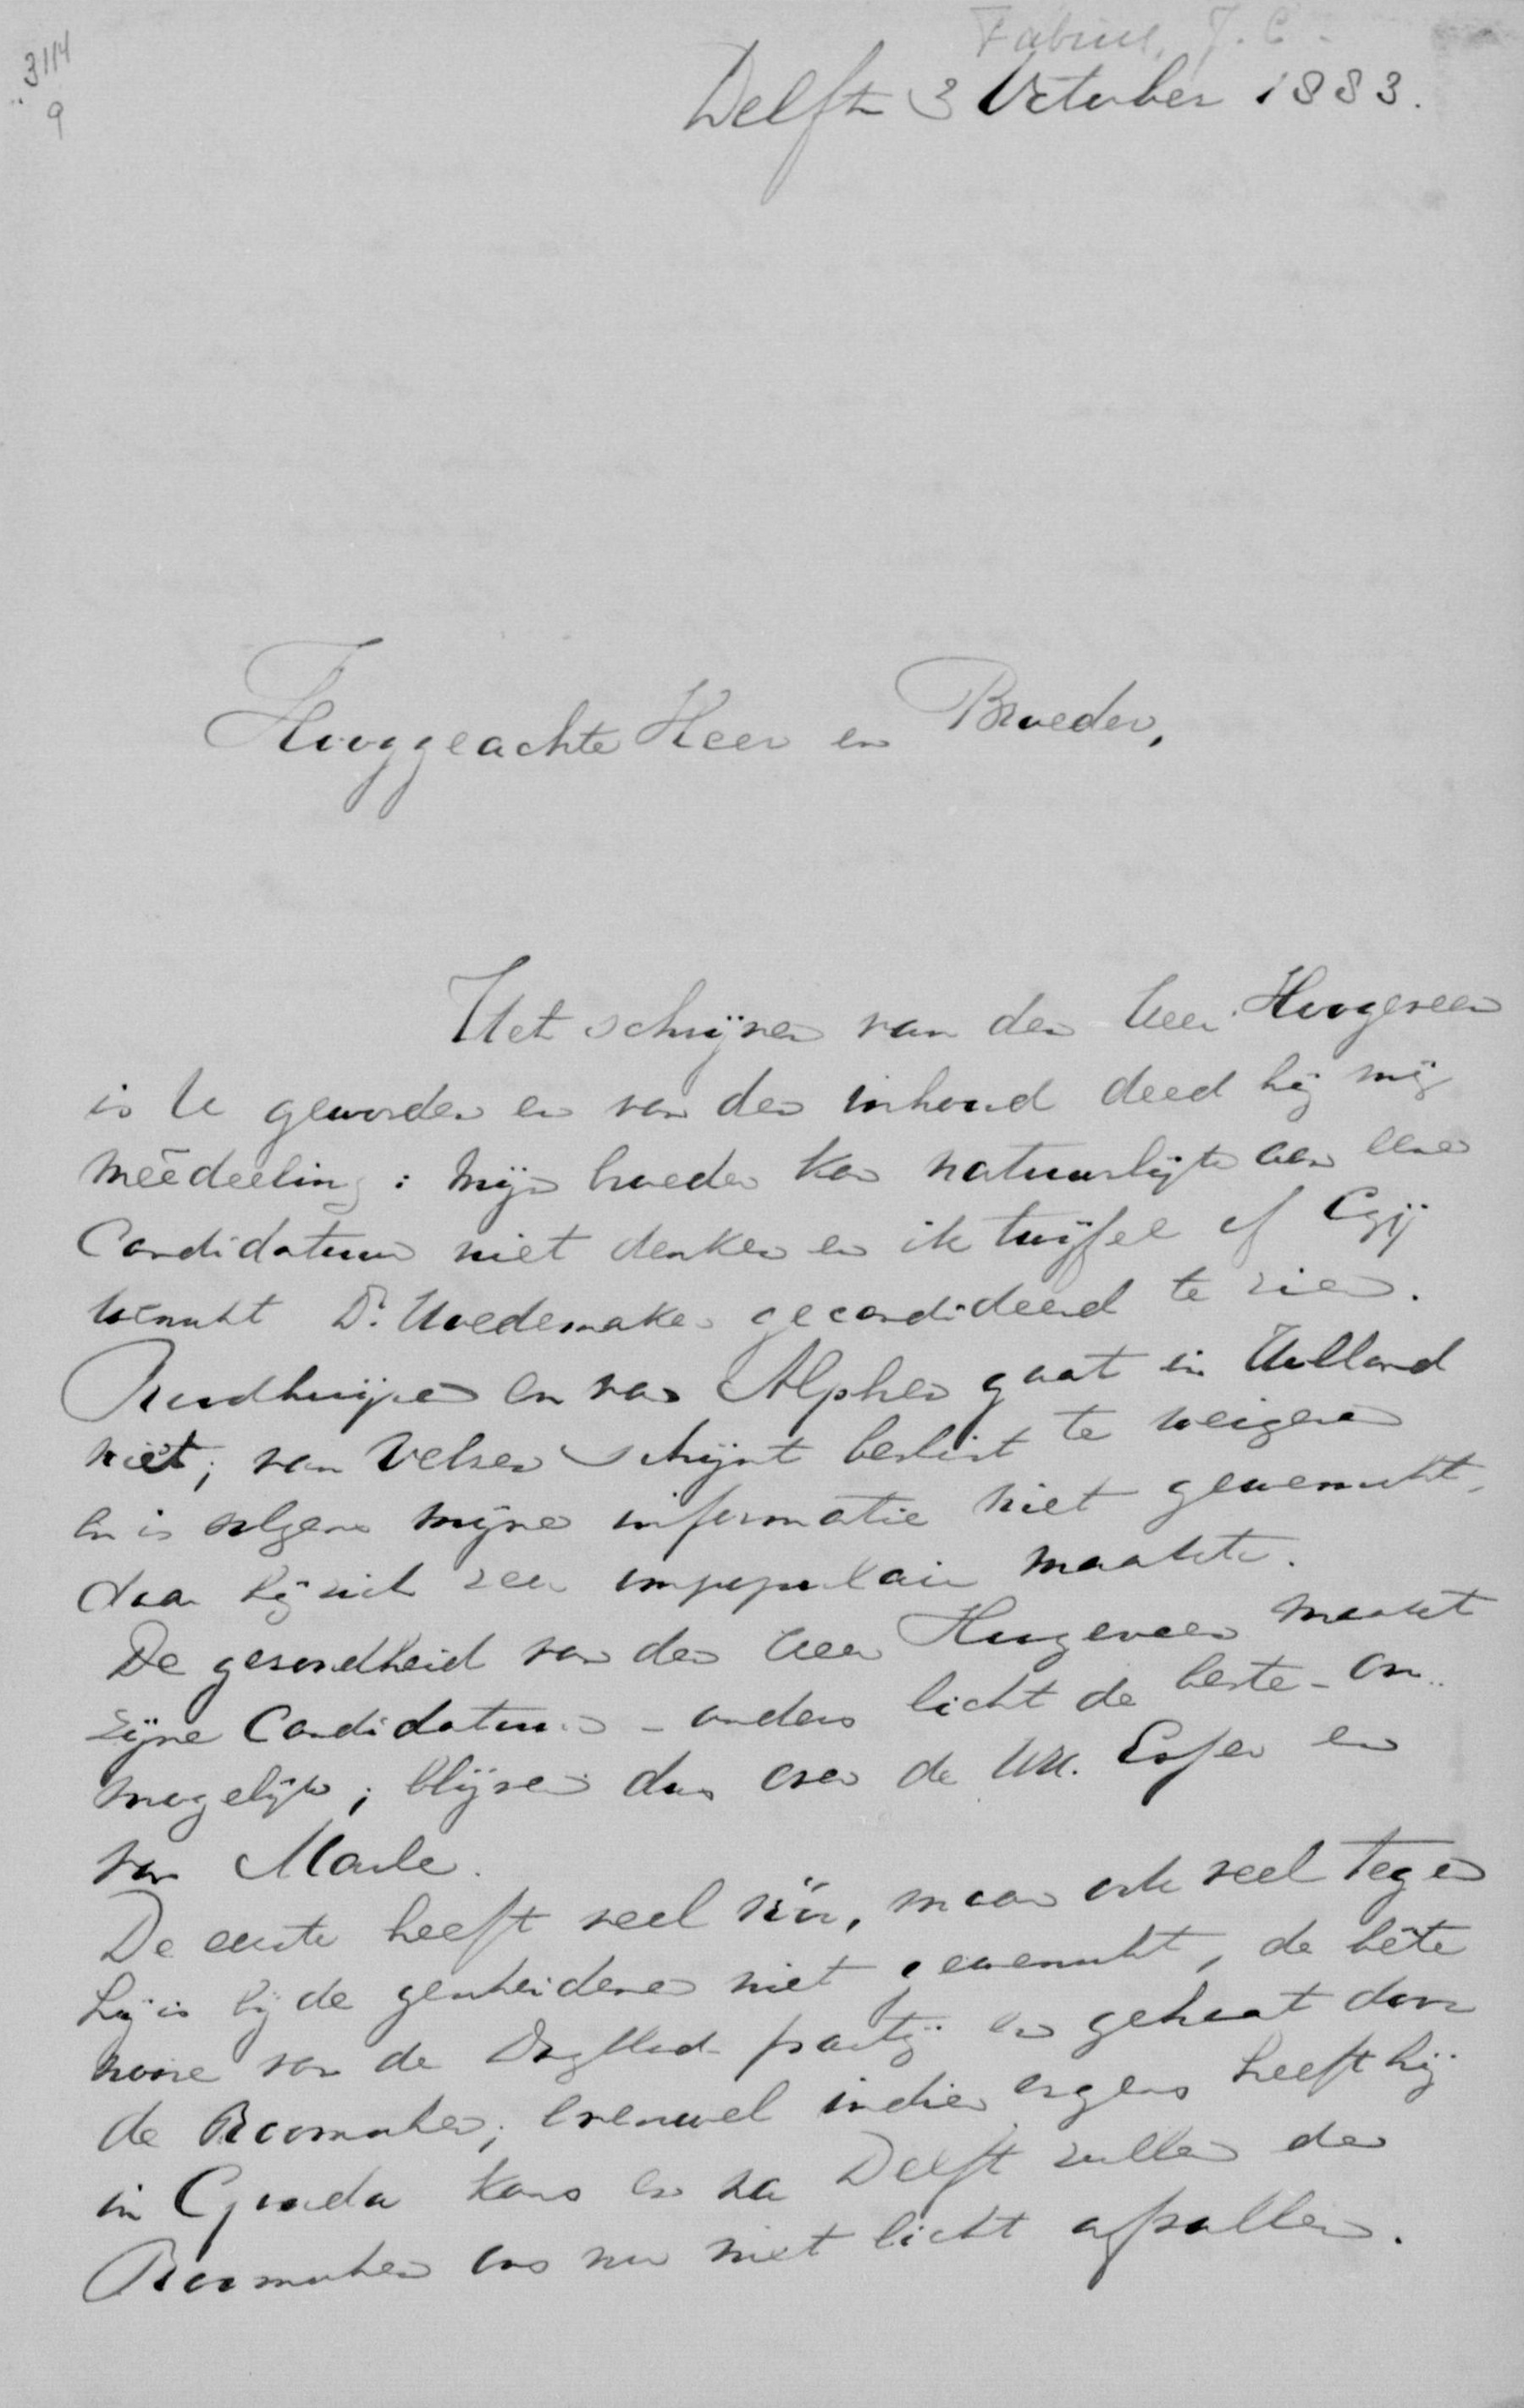 3114
9
Fabius, J.C.
Delft 3 October 1883.
Hooggeachte Heer en Broeder,
Het schrijven van den Heer Hoogeveen
is U geworden en van den inhoud deed hij mij
méédeeling: mijn broeder kan natuurlijk aan eene
Candidatuur niet denken en ik twijfel of Gij
wenscht Dr. Hoedemaker gecandideerd te zien.
Roodhuijzen en van Alphen gaat in Holland
niet; van Velsen schijnt beslist te weigeren
en is volgens mijne informatie niet gewenscht,
daar hij zich zeer impopulair maakte.
De gezondheid van den Heer Hoogeveen maakt
zijne Candidatuur - anders licht de beste - on..
mogelijk; blijven dus over de HH. Esser en
van Marle.
De eerste heeft veel vóór, maar ook veel tegen
hij is bij de gescheidenen niet gewenscht, de bête
noire van de Dagblad-partij en gehaat door
de Roomschen; evenwel indien ergens heeft hij
in Gouda kans en na Delft zullen de
Roomschen ons nu niet licht afvallen.